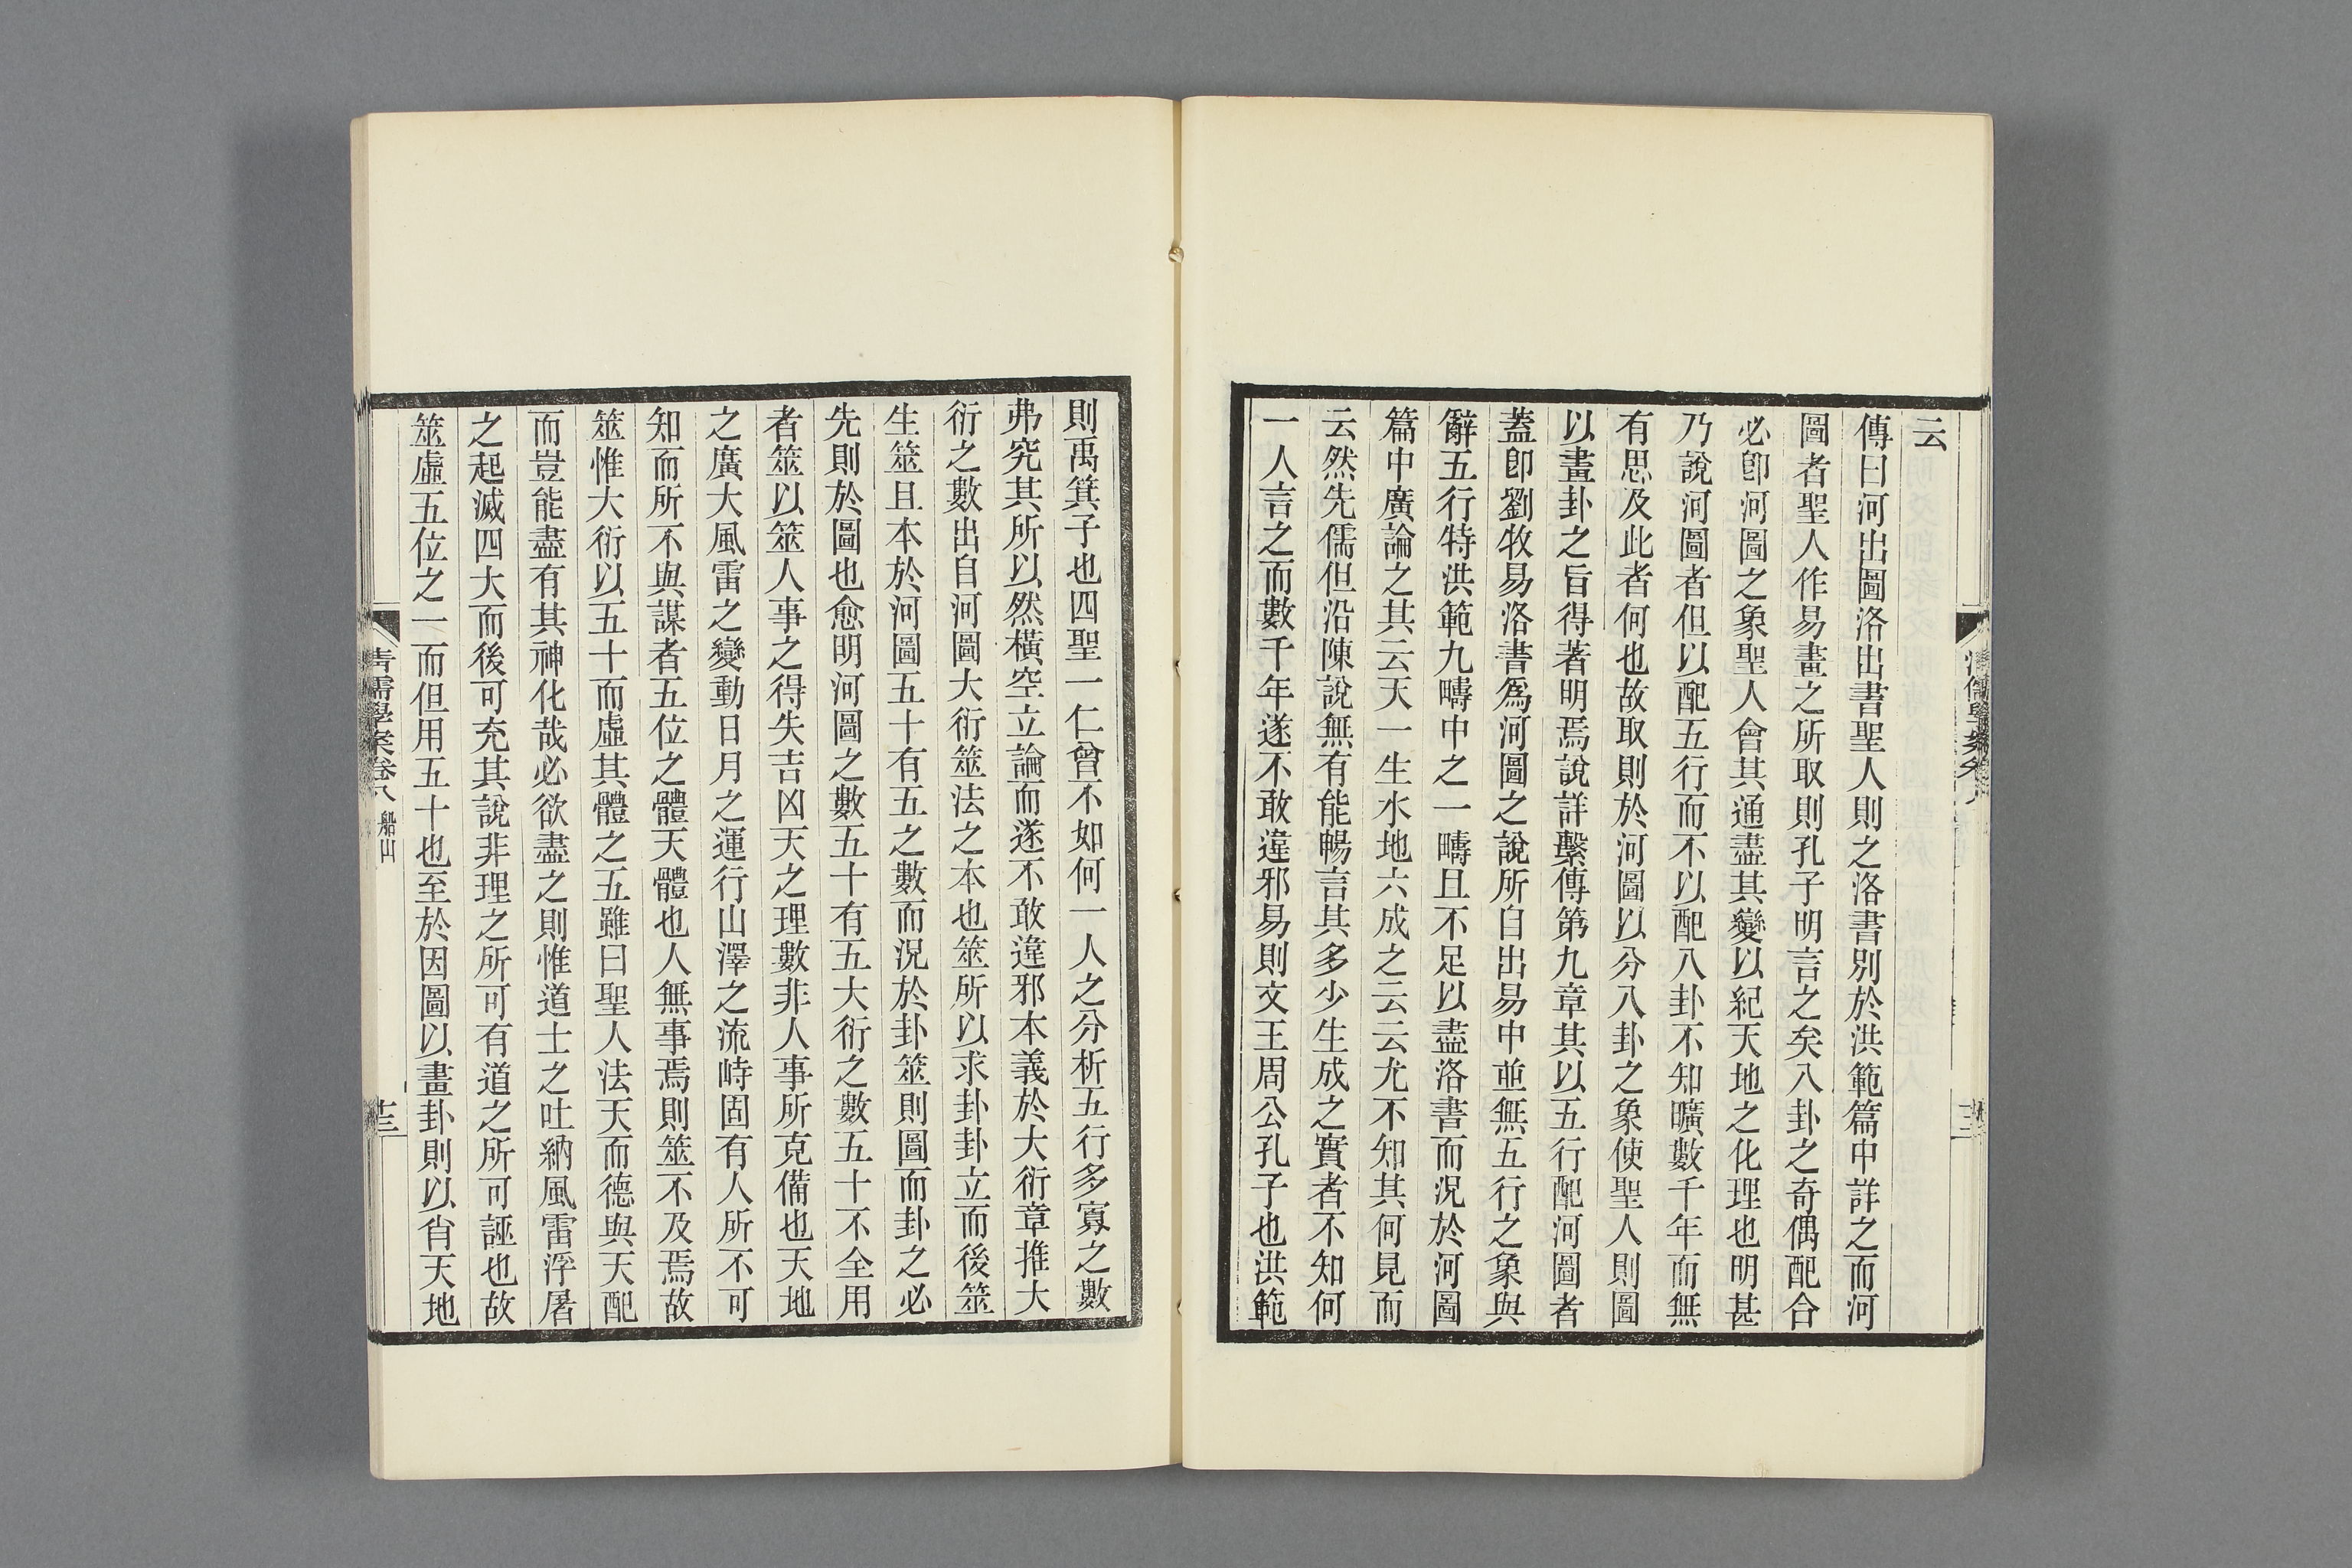 云
傳曰河出圖洛出書聖人則之洛書別於洪範篇中詳之而河
圖者聖人作易畫之所取則孔子明言之矣八卦之奇偶配合
必卽河圖之象聖人會其通盡其變以紀天地之化理也明甚
乃說河圖者但以配五行而不以配八卦不知曠數千年而無
有思及此者何也故取則於河圖以分八卦之象使聖人則圖
以畫卦之旨得著明焉說詳繫傳第九章其以五行配河圖者
蓋卽劉牧易洛書爲河圖之說所自出易中並無五行之象與
辭五行特洪範九疇中之一疇且不足以盡洛書而況於河圖
篇中廣論之其云天一生水地六成之云云尤不知其何見而
云然先儒但沿陳說無有能暢言其多少生成之實者不知何
一人言之而數千年遂不敢違邪易則文王周公孔子也洪範
則禹箕子也四聖一仁曾不如何一人之分析五行多寡之數
弗究其所以然橫空立論而遂不敢違邪本義於大衍章推大
衍之數出自河圖大衍筮法之本也筮所以求卦卦立而後筮
生筮且本於河圖五十有五之數而況於卦筮則圖而卦之必
先則於圖也愈明河圖之數五十有五大衍之數五十不全用
者筮以筮人事之得失吉凶天之理數非人事所克備也天地
之廣大風雷之變動日月之運行山澤之流峙固有人所不可
知而所不與謀者五位之體天體也人無事焉則筮不及焉故
筮惟大衍以五十而虛其體之五雖曰聖人法天而德與天配
而豈能盡有其神化哉必欲盡之則惟道士之吐納風雷浮屠
之起滅四大而後可充其說非理之所可有道之所可誣也故
筮虛五位之一而但用五十也至於因圖以畫卦則以肖天地
清儒學案卷八 船山